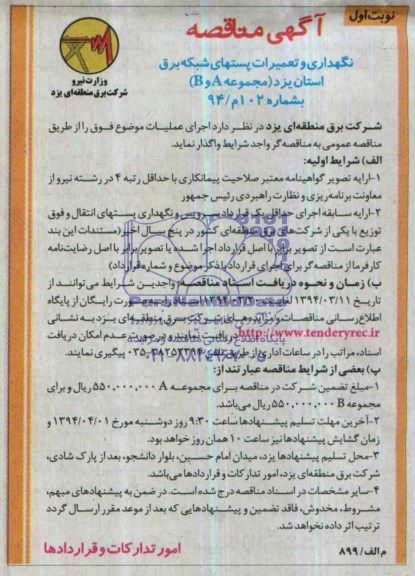 نوبت اول
آگهی مناقصه
وزارت نیرو
شرکت برق منطقه‌ای یزد
نگهداری و تعمیرات پستهای شبکه برق
استان یزد (مجموعه A و B)
بشماره ۱۰۲م/۹۴
شرکت برق منطقه‌ای یزد در نظر دارد اجرای عملیات موضوع فوق را از طریق
مناقصه عمومی به مناقصه‌گر واجد شرایط واگذار نماید.
الف) شرایط اولیه:
۱-ارایه تصویر گواهینامه معتبر صلاحیت پیمانکاری با حداقل رتبه ۴ در رشته نیرو از
معاونت برنامه‌ریزی و نظارت راهبردی رئیس جمهور
۲-ارایه سابقه اجرای حداقل یک قرارداد سرویس و نگهداری پستهای انتقال و فوق
توزیع با یکی از شرکت‌های برق منطقه‌ای کشور در پنج سال اخیر (مستندات این بند
عبارت است از تصویر برابر با اصل قرارداد اجرا شده یا تصویر برابر با اصل رضایت‌نامه
کارفرما از مناقصه‌گر برای اجرای قرارداد با ذکر موضوع و شماره قرارداد)
ب) زمان و نحوه دریافت اسناد مناقصه: واجدین شرایط می‌توانند از
تاریخ ۱۳۹۴/۰۳/۱۱ لغایت اسناد را به صورت رایگان از پایگاه
اطلاع‌رسانی مناقصات و مزایده‌های شرکت برق منطقه‌ای یزد به نشانی
http://www.tenderyrec.ir دریافت نمایند و در صورت عدم امکان دریافت
اسناد، مراتب را در ساعات اداری از طریق تلفن پیگیری نمایند.
پ) بعضی از شرایط مناقصه عبارتند از:
۱-مبلغ تضمین شرکت در مناقصه برای مجموعه A ۵۵۰,۰۰۰,۰۰۰ ریال و برای
مجموعه B ۵۵۰,۰۰۰,۰۰۰ ریال می‌باشد.
۲-آخرین مهلت تسلیم پیشنهادها ساعت ۹:۳۰ روز دوشنبه مورخ ۱۳۹۴/۰۴/۰۱ و
زمان گشایش پیشنهادها نیز ساعت ۱۰ همان روز خواهد بود.
۳-محل تسلیم پیشنهادها یزد، میدان امام حسین، بلوار دانشجو، بعد از پارک شادی،
شرکت برق منطقه‌ای یزد، امور تدارکات و قراردادها می‌باشد.
۴-سایر مشخصات در اسناد مناقصه درج شده است. در ضمن به پیشنهادهای مبهم،
مشروط، مخدوش، فاقد تضمین و پیشنهادهایی که بعد از موعد مقرر ارسال گردد
ترتیب اثر داده نخواهد شد.
امور تدارکات و قراردادها
م الف/۸۹۹